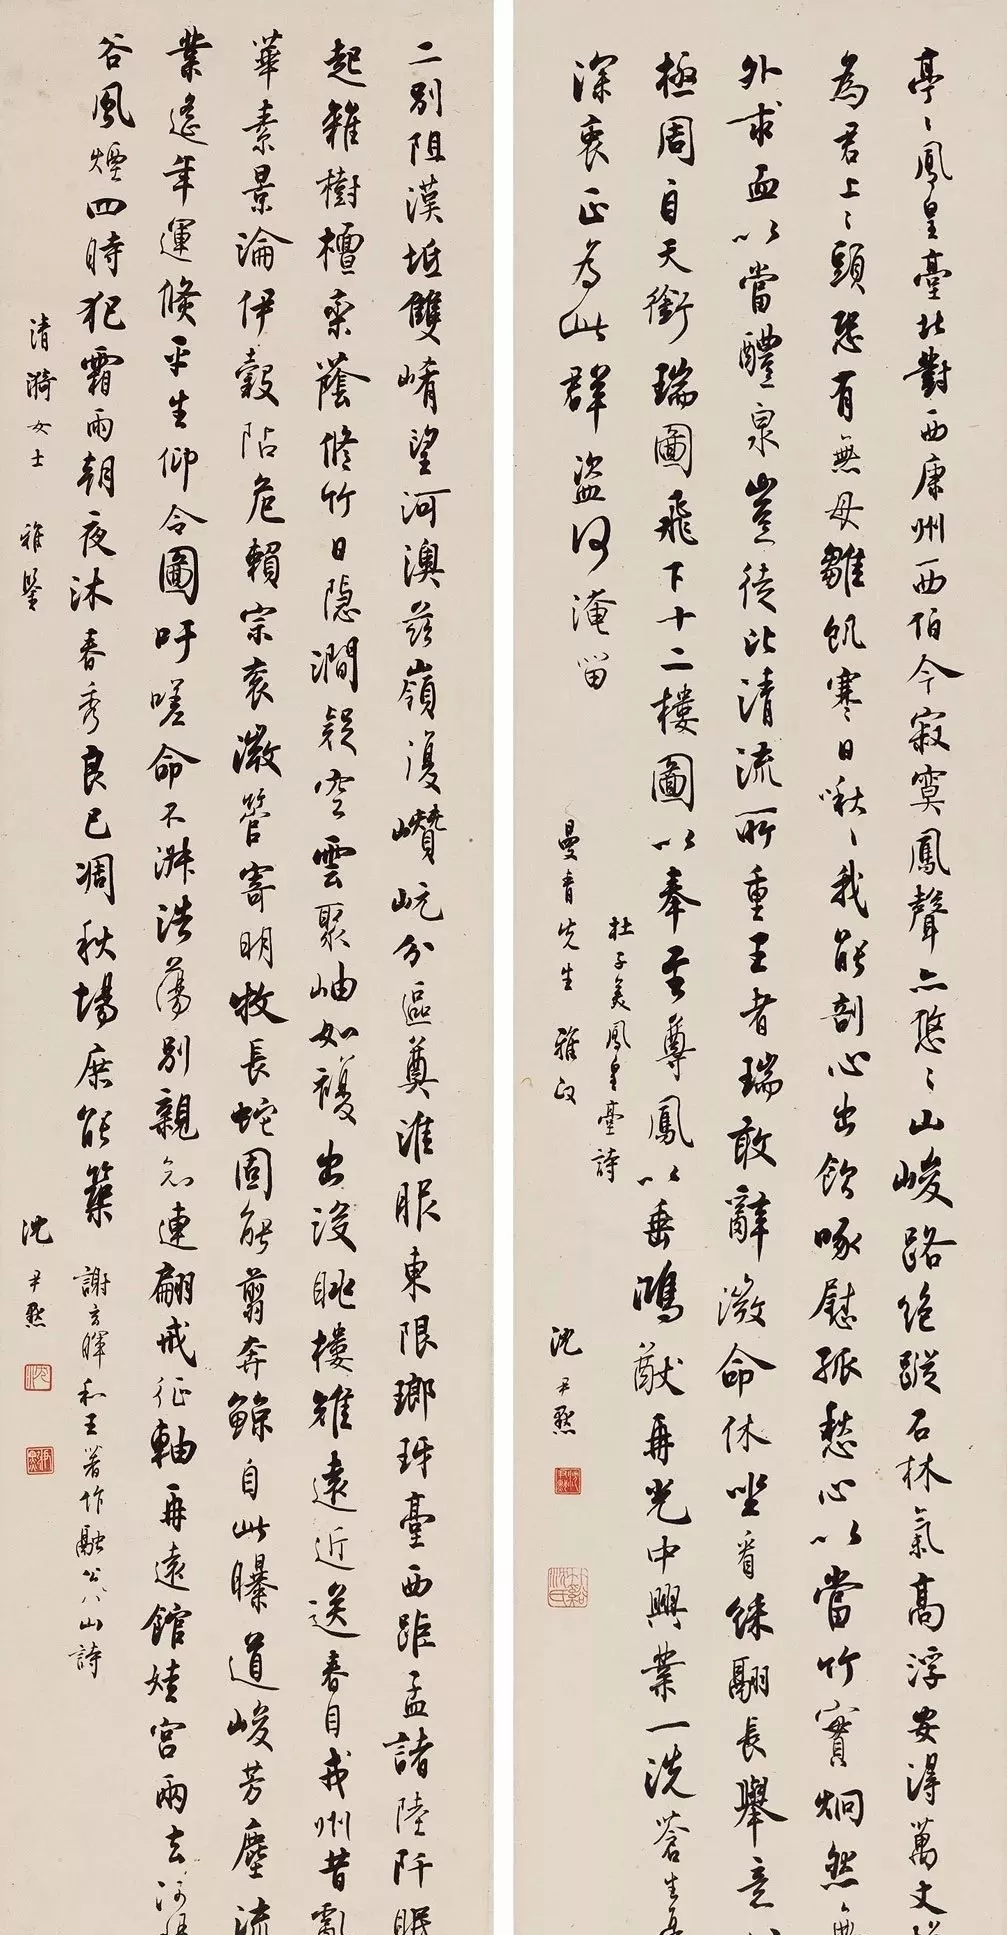 亭〻鳳皇臺北對西康州西伯今寂寞鳳聲亦悠〻山峻路絶蹤石林氣高浮安得萬丈
為君上〻頭恐有無母雛飢寒日啾〻我能剖心出飲啄慰孤愁心以當竹實炯然無
外求血以當醴泉豈徒比清流所重王者瑞敢辭微命休坐看綵翮長舉意
極周自天銜瑞圖飛下十二樓圖以奉至尊鳳以垂鴻猷再光中興業一洗蒼生
深衷正為此群盜何淹留
杜子美鳳皇臺詩
曼青先生 雅政
沈尹默
二別阻漢坻雙崤望河澳茲嶺復巑岏分區奠淮服東限瑯玡臺西距孟諸陸阡眠
起雜樹檀欒蔭修竹日隱澗疑空雲聚岫如複出沒眺樓雉遠近送春目戎州昔亂
華素景淪伊穀阽危賴宗袞微管寄明牧長蛇固能翦奔鯨自此曝道峻芳塵流
業遙年運倏平生仰令圖吁嗟命不淑浩蕩別親知連翩戒征軸再遠館娃宮兩去河
谷風煙四時犯霜雨朝夜沐春秀良已凋秋場庶能築
謝玄暉和王著作融公八山詩
清漪女士 雅鑒
沈尹默